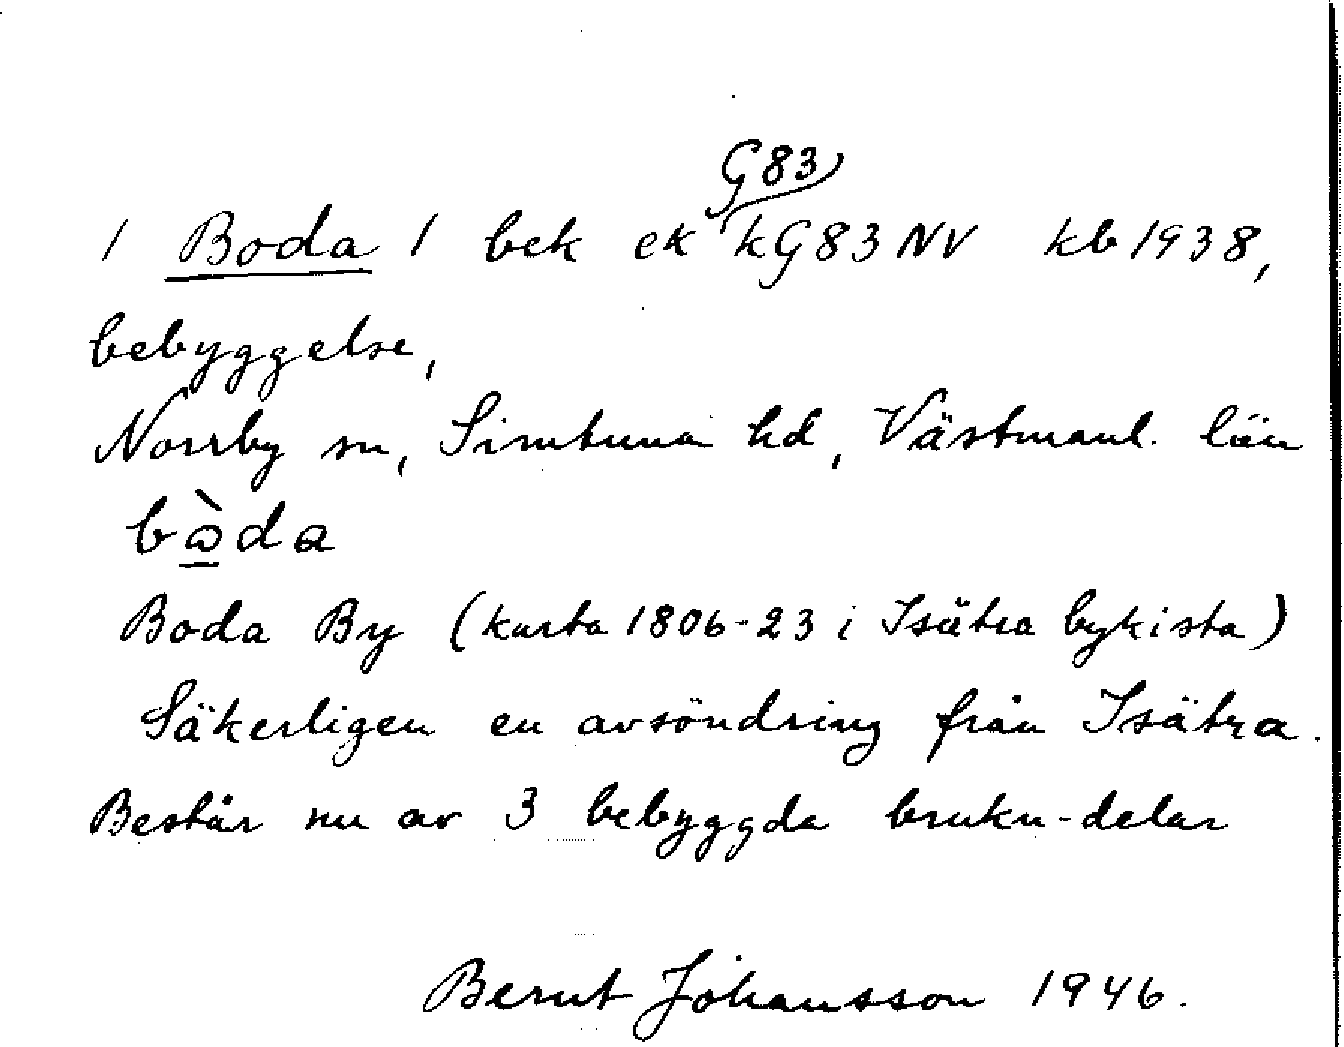 G83
1 Boda 1 bek ek kG83NV kb 1938,
bebyggelse,
Norrby sn, Simtuna hd, Västmanl. län
bὼ̱da
Boda By (karta 1806-23 i Isätra bykista)
Säkerligen en avsöndring från Isätra.
Består nu av 3 bebyggda brukn-delar
Bernt Johansson 1946.